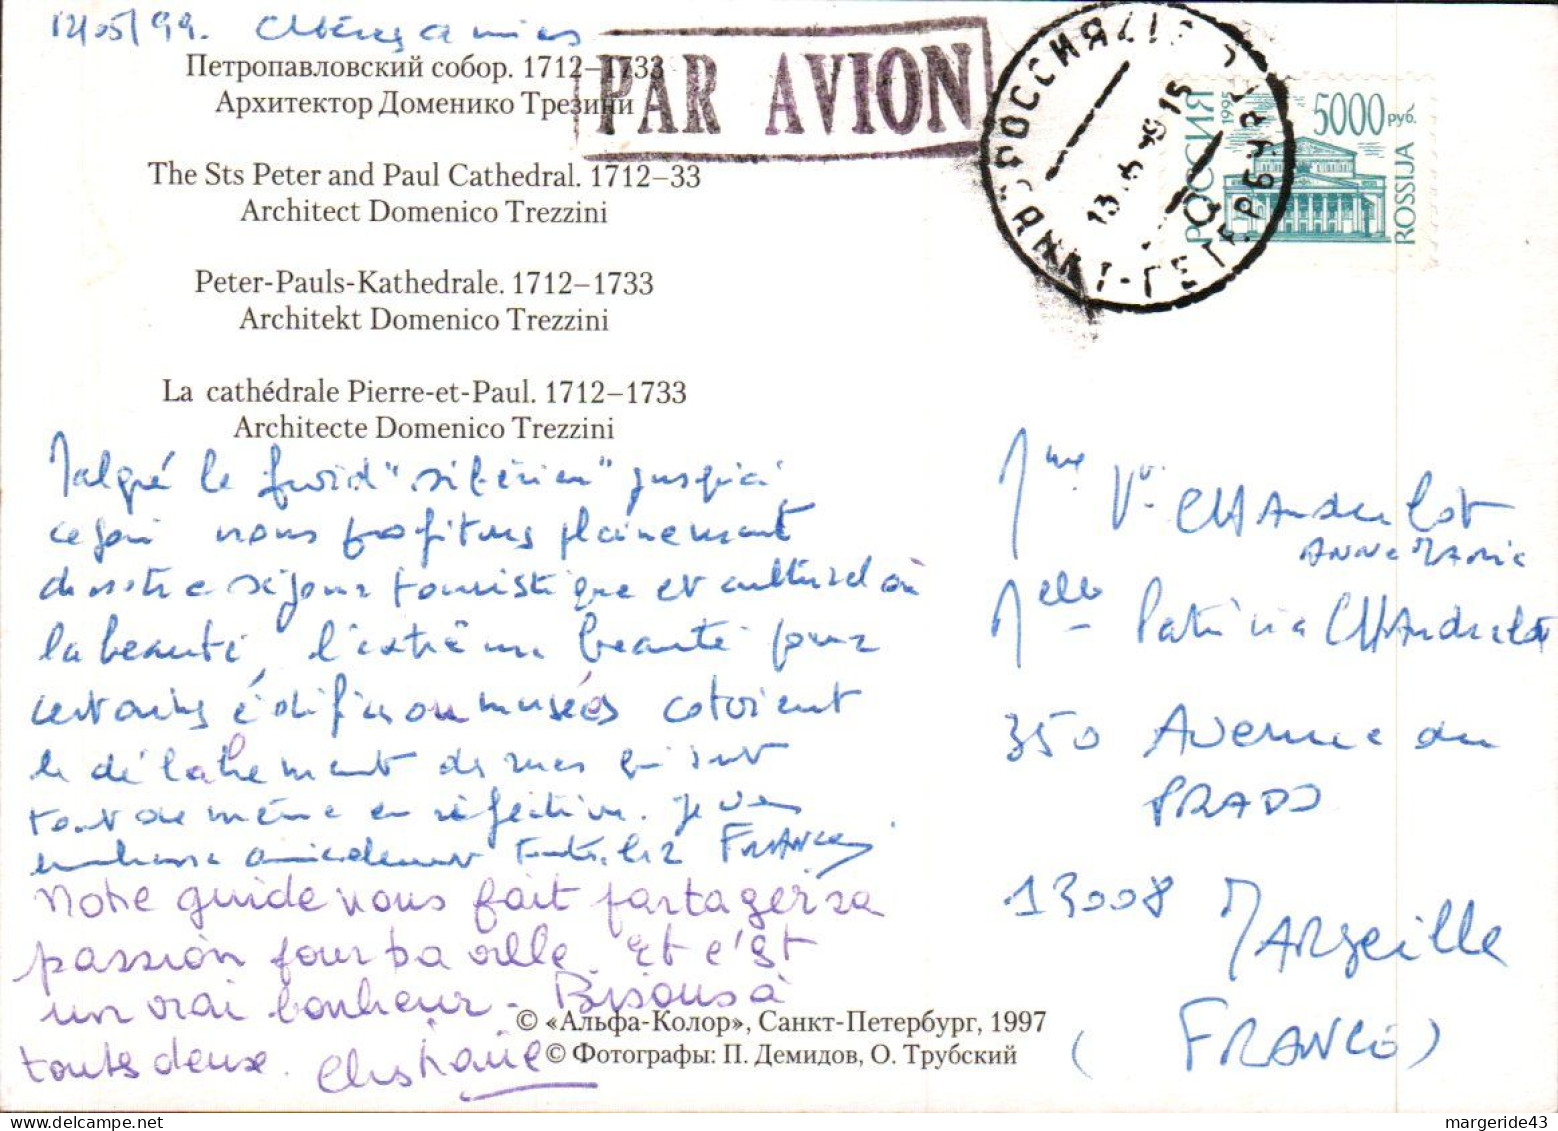 12/05/99. Chères amies
Петропавловский собор. 1712–1733
Архитектор Доменико Трезини
PAR AVION
РОССИЯ
РОССИЯ 1995
5000 руб.
ROSSIJA
The Sts Peter and Paul Cathedral. 1712–33
Architect Domenico Trezzini
Peter-Pauls-Kathedrale. 1712–1733
Architekt Domenico Trezzini
La cathédrale Pierre-et-Paul. 1712–1733
Architecte Domenico Trezzini
Malgré le froid "sibérien" jusqu'ici
ce soir nous profitons pleinement
de notre séjour touristique et culturel où
la beauté, l'extrême beauté pour
certains édifices ou musées côtoient
le délabrement des rues qui sont
tout de même en réfection. Je vous
embrasse amicalement toutes les 2 France
Notre guide nous fait partager sa
passion pour sa ville. Et c'est
un vrai bonheur - Bisous à
toutes deux. Christiane
Mme Ve CHAndelot
ANNE MARIE
Melle Patricia CHAndelot
350 Avenue du
PRADO
13008 MARSeille
(FRANCE)
© «Альфа-Колор», Санкт-Петербург, 1997
© Фотографы: П. Демидов, О. Трубский
margeride43